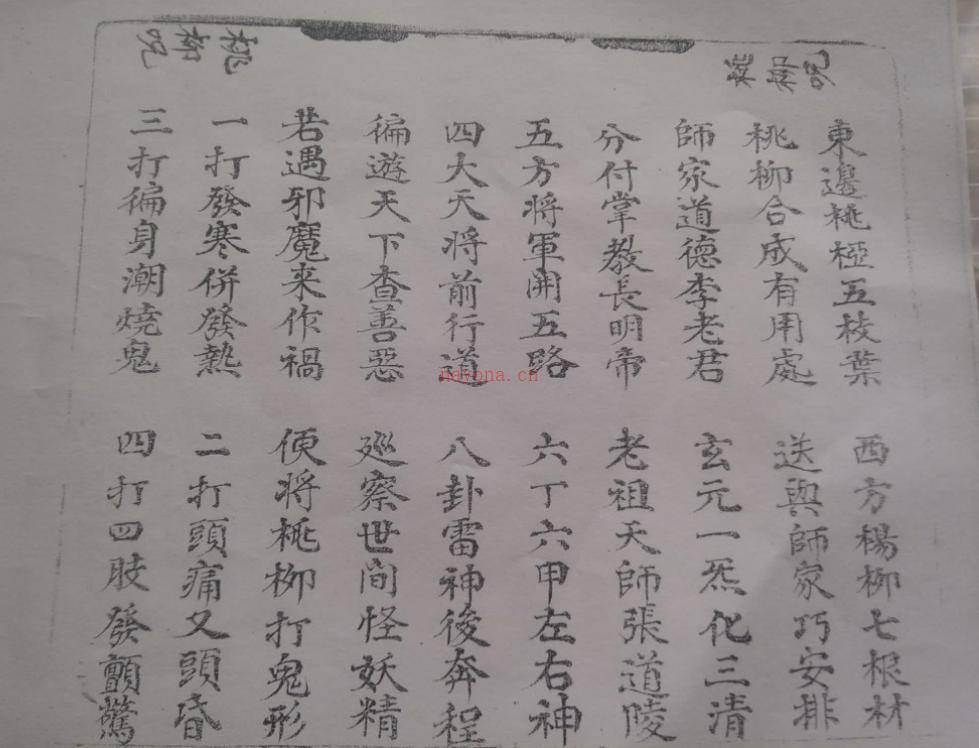 東邊桃椏五枝葉 西方楊柳七根材
桃柳合成有用處 送與師家巧安排
師家道德李老君 玄元一炁化三清
分付掌教長明帝 老祖天師張道陵
五方将軍開五路 六丁六甲左右神
四大天将前行道 八卦雷神後奔程
徧遊天下查善惡 廵察世间怪妖精
若遇邪魔来作禍 便将桃柳打鬼形
一打發寒併發熱 二打頭痛又頭昏
三打徧身潮燒鬼 四打四肢發顫驚
桃柳咒
nayona.cn